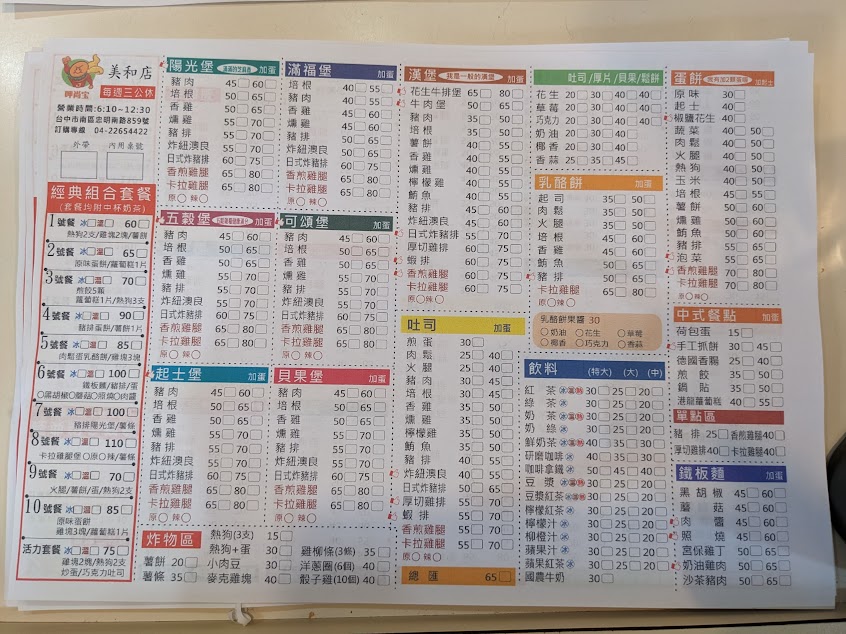 呷尚宝
美和店
每週三公休
營業時間:6:10~12:30
台中市南區忠明南路859號
訂購專線 04-22654422
外帶 內用桌號
經典組合套餐
(套餐均附中杯奶茶)
1號餐 冰 溫 60
熱狗2支/雞塊2塊/薯餅
2號餐 冰 溫 65
原味蛋餅/蘿蔔糕1片
3號餐 冰 溫 70
煎餃5顆
蘿蔔糕1片/熱狗3支
4號餐 冰 溫 90
豬排蛋餅/薯餅1片
5號餐 冰 溫 85
肉鬆蛋乳酪餅/雞塊3塊
6號餐 冰 溫 100
鐵板麵/豬排/蛋
黑胡椒 蘑菇 照燒 肉醬
7號餐 冰 溫 100
豬排陽光堡/薯條
8號餐 冰 溫 110
卡拉雞腿堡 原 辣/薯條
9號餐 冰 溫 70
火腿/薯餅/蛋/熱狗2支
10號餐 冰 溫 85
原味蛋餅
雞塊3塊/蘿蔔糕1片
活力套餐 冰 溫 75
雞塊2塊/熱狗2支
炒蛋/巧克力吐司
陽光堡 加蛋
豬肉 45 60
培根 50 65
香雞 50 65
燻雞 55 70
豬排 55 70
炸紐澳良 55 70
日式炸豬排 60 75
香煎雞腿 65 80
卡拉雞腿 65 80
原 辣
滿福堡 加蛋
培根 40 55
豬肉 40 55
香雞 45 60
燻雞 45 60
豬排 50 65
炸紐澳良 50 65
日式炸豬排 55 70
香煎雞腿 60 75
卡拉雞腿 60 75
原 辣
五穀堡 加蛋
豬肉 45 60
培根 50 65
香雞 50 65
燻雞 55 70
豬排 55 70
炸紐澳良 55 70
香煎雞腿 65 80
卡拉雞腿 65 80
原 辣
可頌堡 加蛋
豬肉 45 60
培根 50 65
香雞 50 65
燻雞 55 70
豬排 55 70
炸紐澳良 55 70
香煎雞腿 65 80
卡拉雞腿 65 80
原 辣
起士堡 加蛋
豬肉 45 60
培根 50 65
香雞 50 65
燻雞 55 70
豬排 55 70
炸紐澳良 55 70
日式炸豬排 60 75
香煎雞腿 65 80
卡拉雞腿 65 80
原 辣
貝果堡 加蛋
豬肉 45 60
培根 50 65
香雞 50 65
燻雞 55 70
豬排 55 70
炸紐澳良 55 70
日式炸豬排 60 75
香煎雞腿 65 80
卡拉雞腿 65 80
原 辣
炸物區
薯餅 20
薯條 35
熱狗(3支) 15
熱狗+蛋 30
小肉豆 30
麥克雞塊 40
雞柳條(3條) 35
洋蔥圈(6個) 40
骰子雞(10個) 40
漢堡 我是一般的漢堡 加蛋
花生牛排堡 65 80
牛肉堡 50 65
豬肉 35 50
培根 35 50
薯餅 40 55
香雞 40 55
燻雞 40 55
檸檬雞 40 55
鮪魚 40 55
豬排 45 60
炸紐澳良 45 60
日式炸豬排 55 70
厚切雞排 60 75
蝦排 60 75
香煎雞腿 60 75
卡拉雞腿 60 75
原 辣
吐司 加蛋
煎蛋 30
肉鬆 25 40
火腿 25 40
豬肉 30 45
培根 30 45
香雞 35 50
燻雞 35 50
檸檬雞 35 50
鮪魚 35 50
豬排 40 55
炸紐澳良 40 55
日式炸豬排 50 65
厚切雞排 55 70
蝦排 55 70
香煎雞腿 55 70
卡拉雞腿 55 70
原 辣
總匯 65
吐司/厚片/貝果/鬆餅
花生 20 30 40 40
草莓 20 30 40 40
巧克力 20 30 40 40
奶油 20 30 40
椰香 20 30 40
香蒜 25 35 45
乳酪餅 加蛋
起司 35 50
肉鬆 35 50
火腿 35 50
培根 45 60
香雞 45 60
鮪魚 50 65
豬排 50 65
香煎雞腿 65 80
卡拉雞腿 65 80
原 辣
乳酪餅果醬 30
奶油 花生 草莓
椰香 巧克力 香蒜
飲料 (特大) (大) (中)
紅茶 30 25 20
綠茶 30 25 20
奶茶 30 25 20
奶綠 30 25 20
鮮奶茶 40 35 30
研磨咖啡 40 35 30
咖啡拿鐵 50 45 40
豆漿 30 25 20
豆漿紅茶 30 25 20
檸檬紅茶 30 25 20
檸檬汁 30 25 20
柳橙汁 30 25 20
蘋果汁 30 25 20
蘋果紅茶 30 25 20
國農牛奶 30
蛋餅 加起士
原味 30
起士 40
椒鹽花生 40
蔬菜 40 50
肉鬆 40 50
火腿 40 50
熱狗 40 50
玉米 40 50
培根 40 50
薯餅 40 50
燻雞 50 60
鮪魚 50 60
豬排 50 60
泡菜 55 65
香煎雞腿 70 80
卡拉雞腿 70 80
原 辣
中式餐點 加蛋
荷包蛋 15
手工抓餅 30 45
德國香腸 25 40
煎餃 30 45
鍋貼 30 45
港龍蘿蔔糕 40 55
單點區
豬排 25 香煎雞腿 40
厚切雞排 40 卡拉雞腿 40
鐵板麵 加蛋
黑胡椒 45 60
蘑菇 45 60
肉醬 45 60
照燒 45 60
宮保雞丁 50 65
奶油雞肉 50 65
沙茶豬肉 50 65